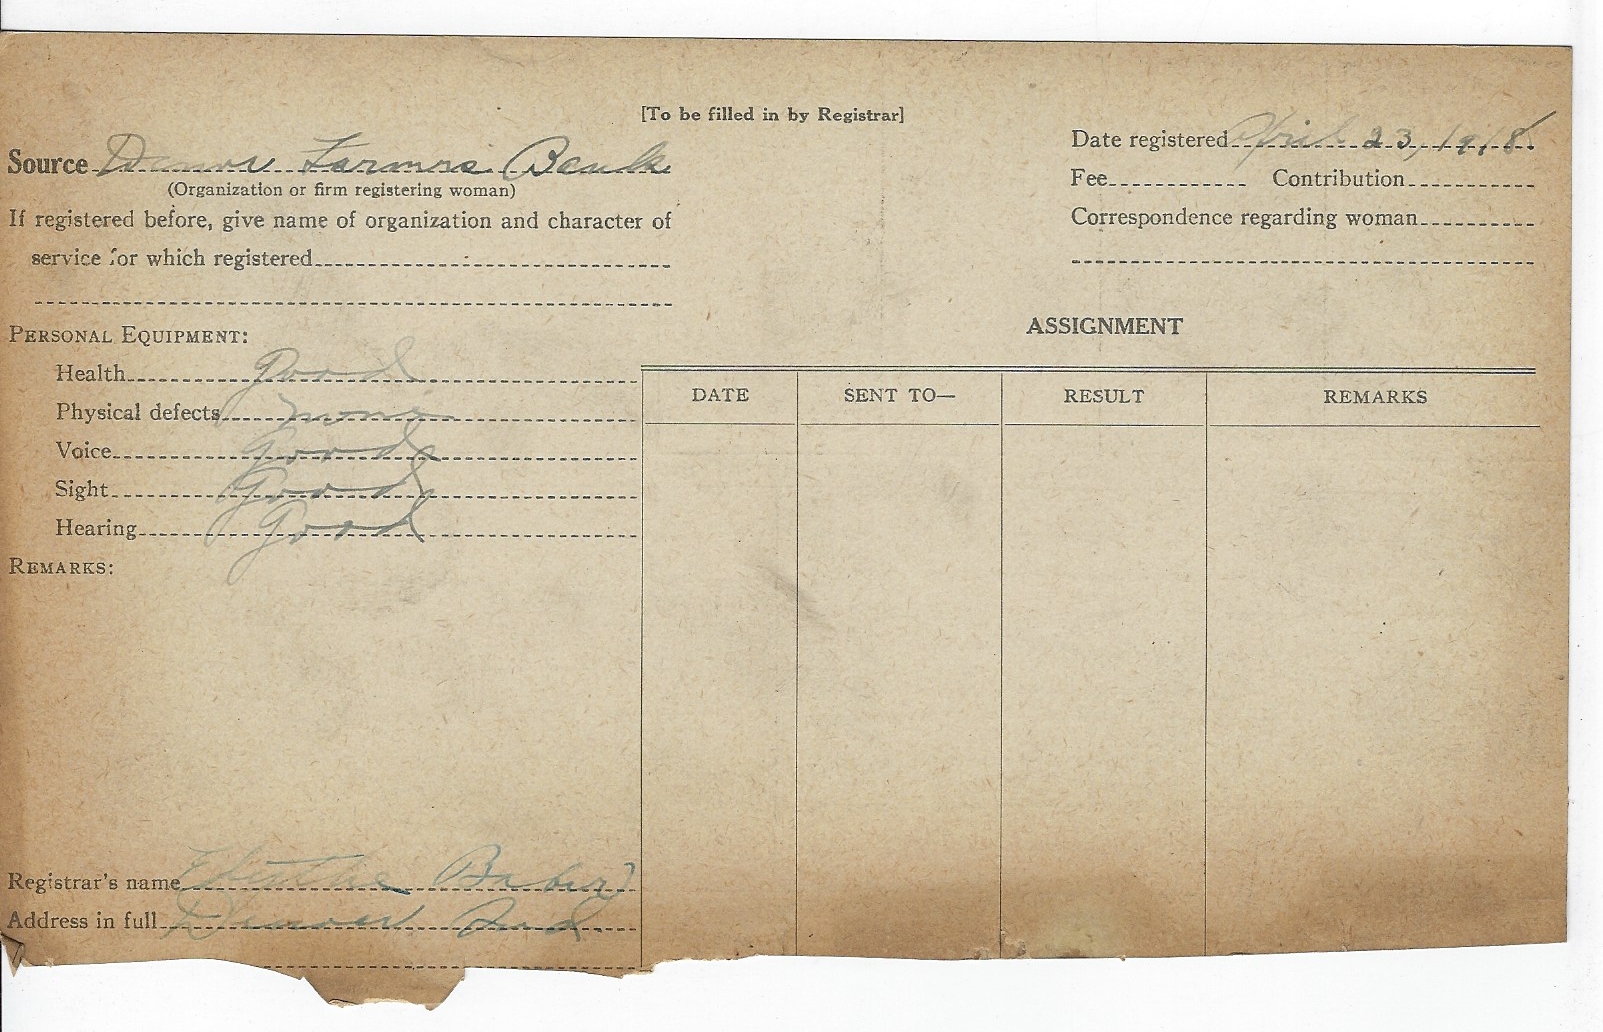 [To be filled in by Registrar]
Source Denver Farmers Bank
(Organization or firm registering woman)
If registered before, give name of organization and character of
service for which registered
Date registered April 23, 1918
Fee Contribution
Correspondence regarding woman
PERSONAL EQUIPMENT:
Health good
Physical defects none
Voice Good
Sight Good
Hearing Good
REMARKS:
ASSIGNMENT
DATE SENT TO— RESULT REMARKS
Registrar's name
Address in full Denver Ind.